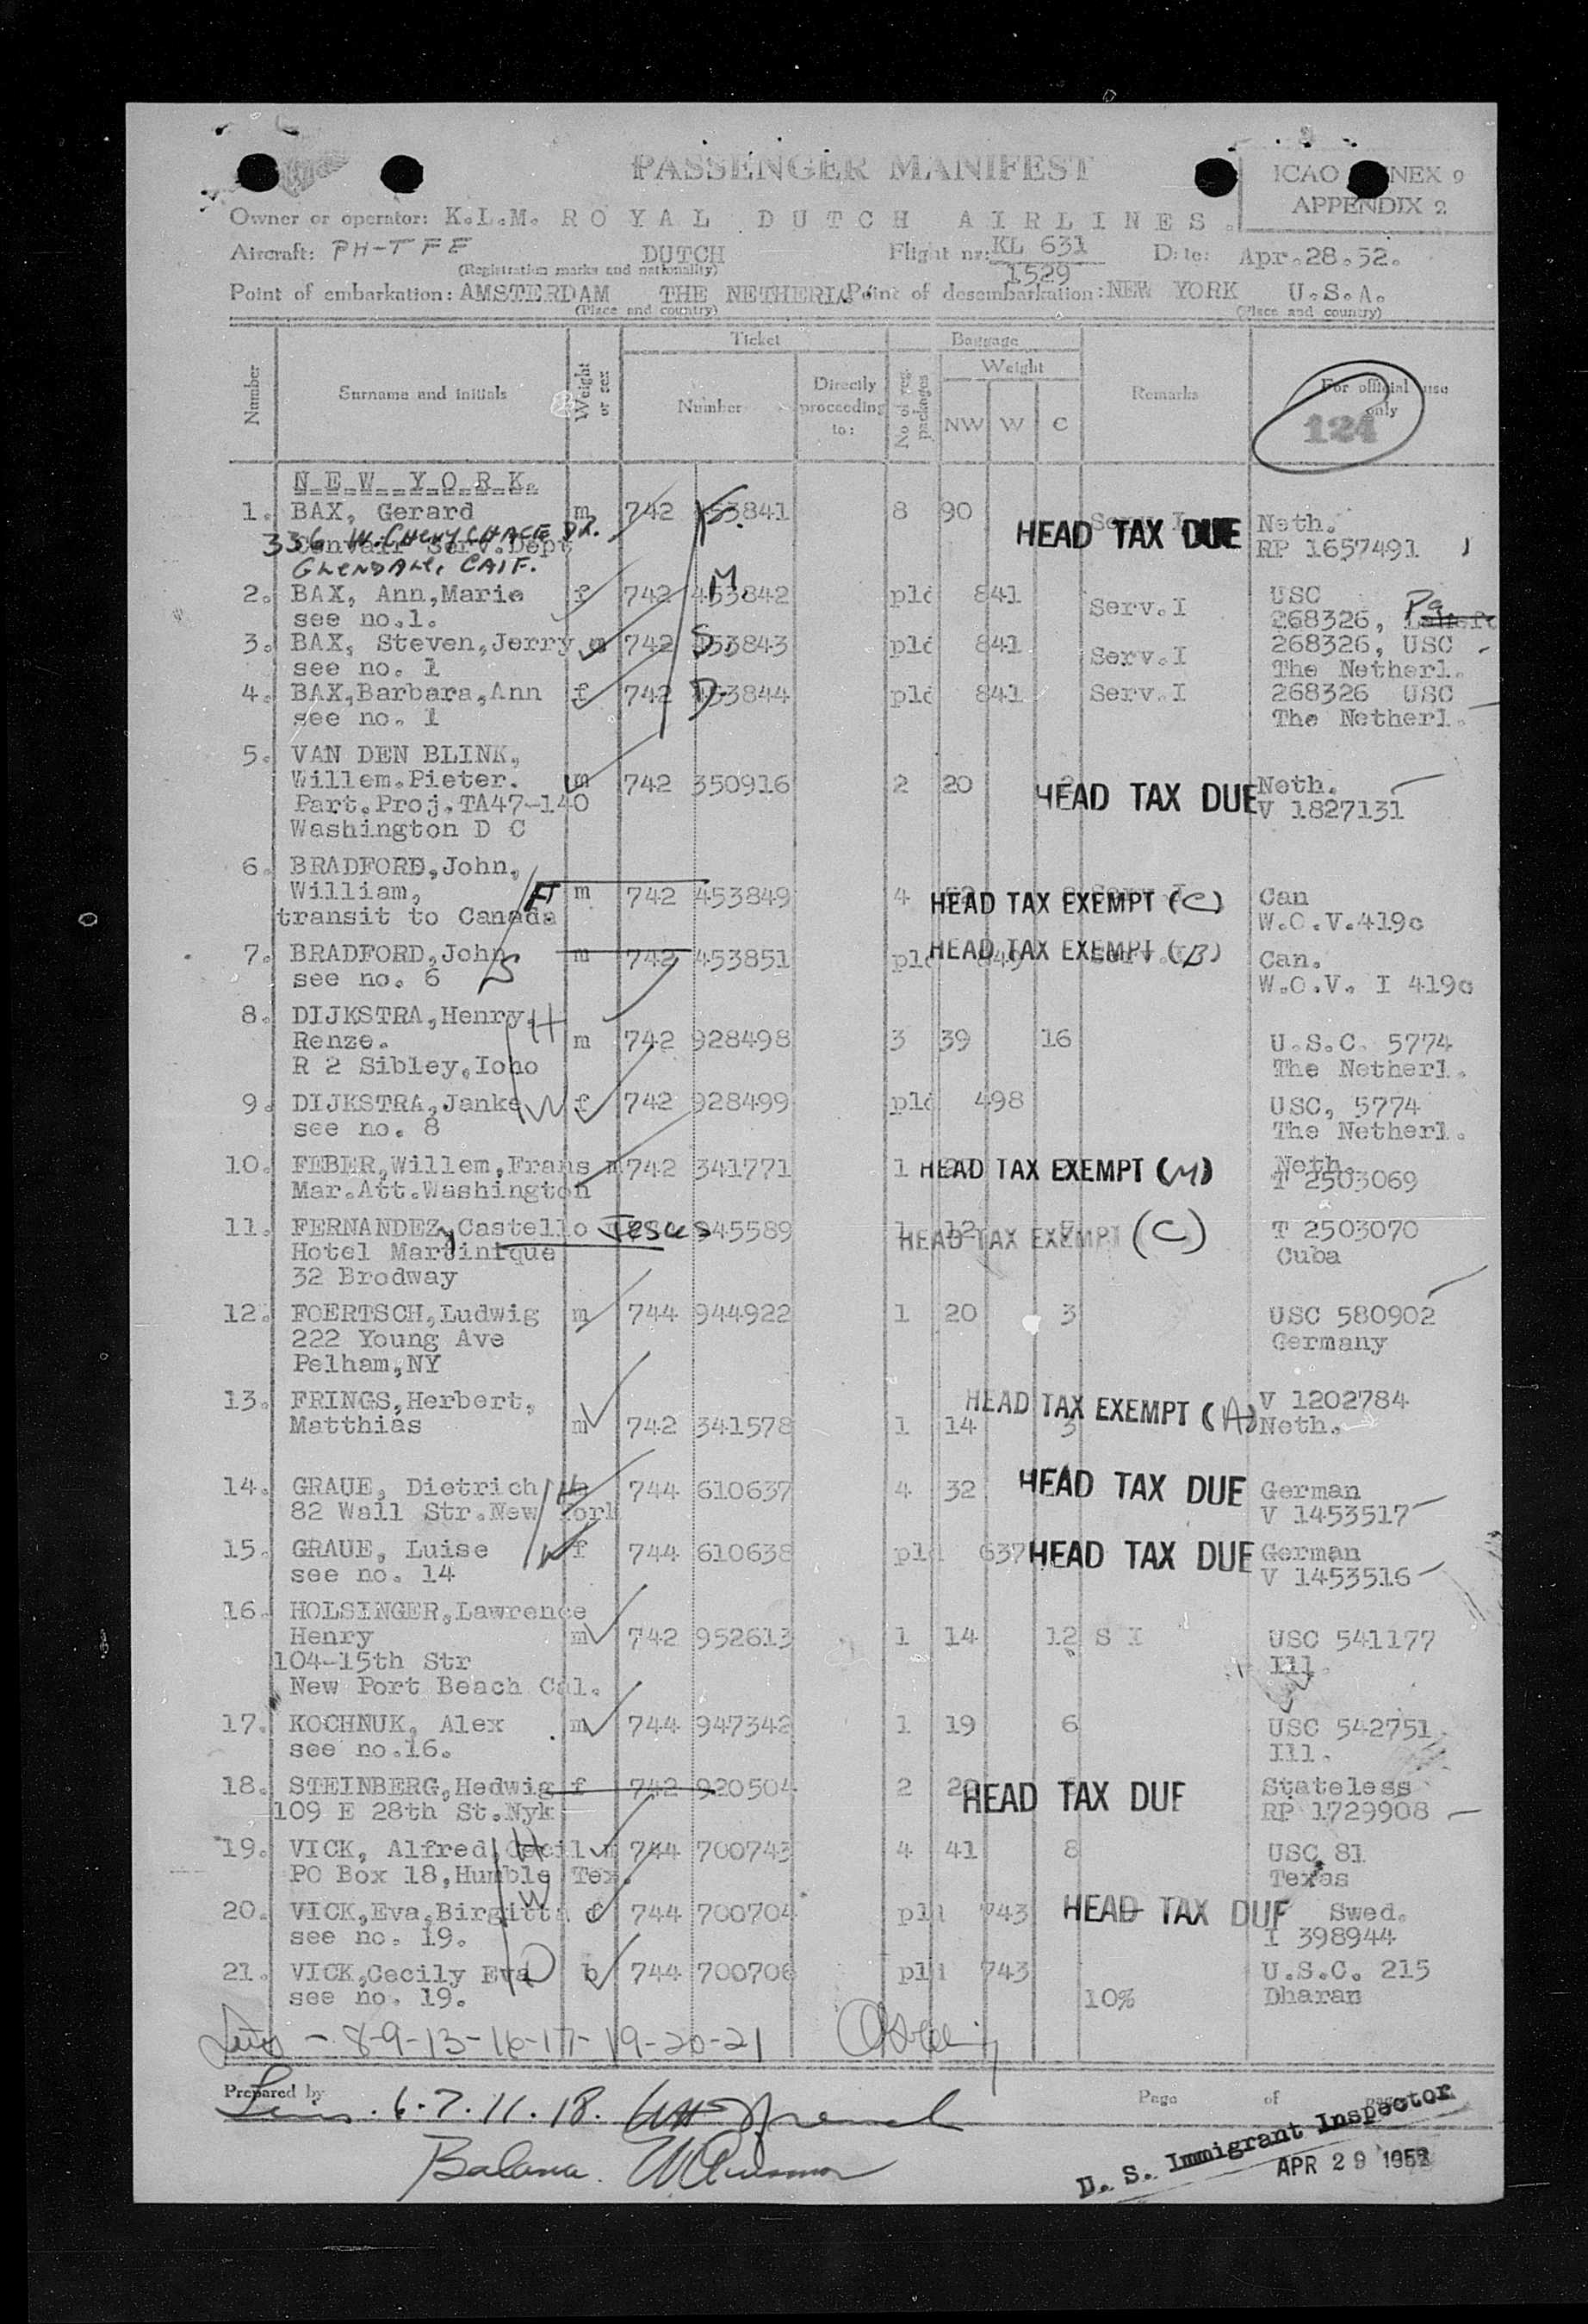 PASSENGER MANIFEST
ICAO NEX 9
APPENDIX 2
Owner or operator: K.L.M. ROYAL DUTCH AIRLINES.
Aircraft: PH-TFF DUTCH Flight nr: KL 631 Date: Apr.28.52.
(Registration marks and nationality) 1529
Point of embarkation: AMSTERDAM THE NETHERLA Point of desembarkation: NEW YORK U.S.A.
(Place and country) (Place and country)
Ticket Baggage
Number Surname and initials Weight or sex Number Directly proceeding to: No of reg. packages Weight NW W C Remarks For official use only
124
NEW YORK.
1. BAX, Gerard m 742 453841 S. 8 90 Serv.I HEAD TAX DUE Neth.
336 W. CHEVY CHACE DR. RP 1657491
Convair Serv.Dept
GLENDALE, CAIF.
2. BAX, Ann,Marie f 742 453842 M. pld 841 Serv.I USC
see no.1. 268326,
3. BAX, Steven,Jerry m 742 453843 S. pld 841 Serv.I 268326, USC
see no. 1 The Netherl.
4. BAX,Barbara,Ann f 742 453844 D. pld 841 Serv.I 268326 USC
see no. 1 The Netherl.
5. VAN DEN BLINK,
Willem.Pieter. m 742 350916 2 20 2 HEAD TAX DUE Neth.
Part.Proj.TA47-140 V 1827131
Washington D C
6. BRADFORD,John,
William, F m 742 453849 4 HEAD TAX EXEMPT (C) Can
transit to Canada W.O.V.419c
7. BRADFORD,John S m 742 453851 pld 849 HEAD TAX EXEMPT (B) Can.
see no. 6 W.O.V. I 419c
8. DIJKSTRA,Henry, H
Renze. m 742 928498 3 39 16 U.S.C. 5774
R 2 Sibley,Ioho The Netherl.
9. DIJKSTRA,Janke W f 742 928499 pld 498 USC, 5774
see no. 8 The Netherl.
10. FEBER,Willem,Frans m 742 341771 1 HEAD TAX EXEMPT (M) Neth.
Mar.Att.Washington T 2503069
11. FERNANDEZ y Castello Jesus 945589 1 12 HEAD TAX EXEMPT (C) T 2503070
Hotel Martinique Cuba
32 Brodway
12. FOERTSCH,Ludwig m 744 944922 1 20 3 USC 580902
222 Young Ave Germany
Pelham,NY
13. FRINGS,Herbert, HEAD TAX EXEMPT (A) V 1202784
Matthias m 742 341578 1 14 3 Neth.
14. GRAUE, Dietrich H 744 610637 4 32 HEAD TAX DUE German
82 Wall Str.New York V 1453517
15. GRAUE, Luise W f 744 610638 pld 637 HEAD TAX DUE German
see no. 14 V 1453516
16. HOLSINGER,Lawrence
Henry m 742 952613 1 14 12 S I USC 541177
104-15th Str Ill.
New Port Beach Cal.
17. KOCHNUK, Alex m 744 947342 1 19 6 USC 542751
see no.16. Ill.
18. STEINBERG,Hedwig f 742 920504 2 HEAD TAX DUE Stateless
109 E 28th St.Nyk RP 1729908
19. VICK, Alfred,Cecil H m 744 700743 4 41 8 USC 81
PO Box 18,Humble Tex. Texas
20. VICK,Eva,Birgitta W f 744 700704 pld 743 HEAD TAX DUE Swed.
see no. 19. I 398944
21. VICK,Cecily Eva D b 744 700706 pld 743 U.S.C. 215
see no. 19. 10% Dharan
- 8-9-13-16-17-19-20-21
Prepared by Page of
6.7.11.18.
Balance.
U. S. Immigrant Inspector
APR 29 1952